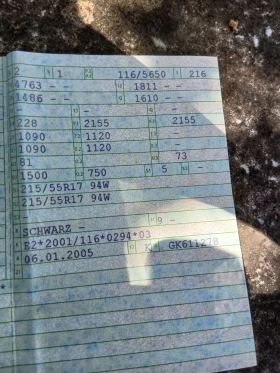 2 1 116/5650 216
4763 - - 1811 - -
1486 - - 1610 - -
- -
228 2155 2155
1090 1120 -
1090 1120 -
81 - 73
1500 750 5 -
215/55R17 94W
215/55R17 94W
- 9 -
SCHWARZ -
E2*2001/116*0294*03
06.01.2005 K GK611278